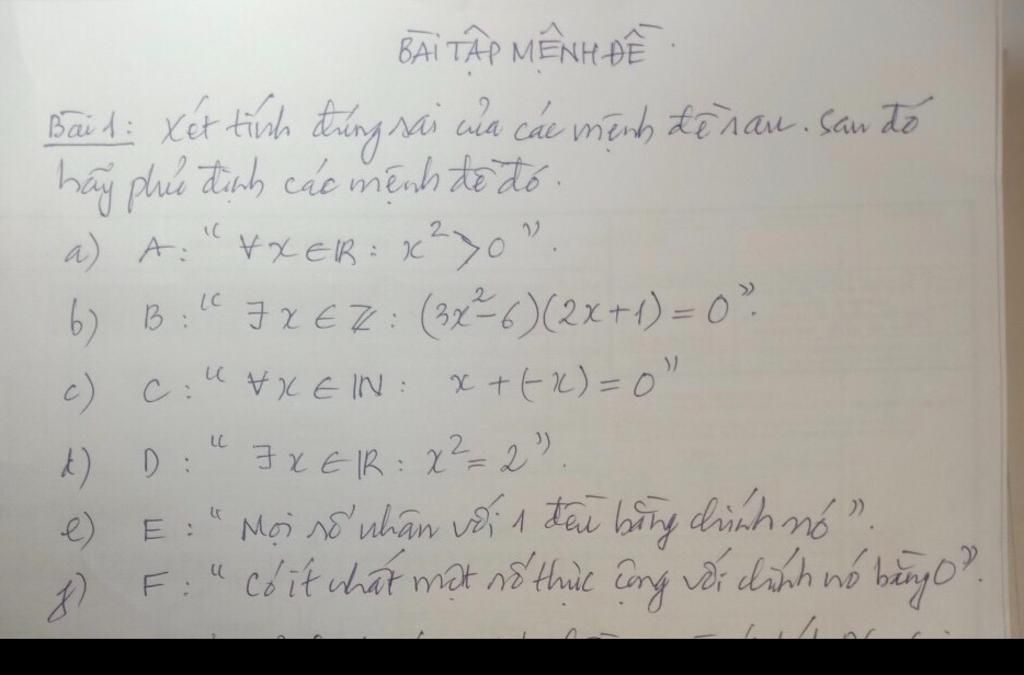 BÀI TẬP MỆNH ĐỀ.
Bài 1: Xét tính đúng sai của các mệnh đề sau. Sau đó
hãy phủ định các mệnh đề đó.
a) A: "∀x ∈ ℝ: x² > 0".
b) B: "∃x ∈ ℤ: (3x²-6)(2x+1) = 0".
c) C: "∀x ∈ ℕ: x + (-x) = 0"
d) D: "∃x ∈ ℝ: x² = 2".
e) E: "Mọi số nhân với 1 đều bằng chính nó".
f) F: "Có ít nhất một số thực cộng với chính nó bằng 0".